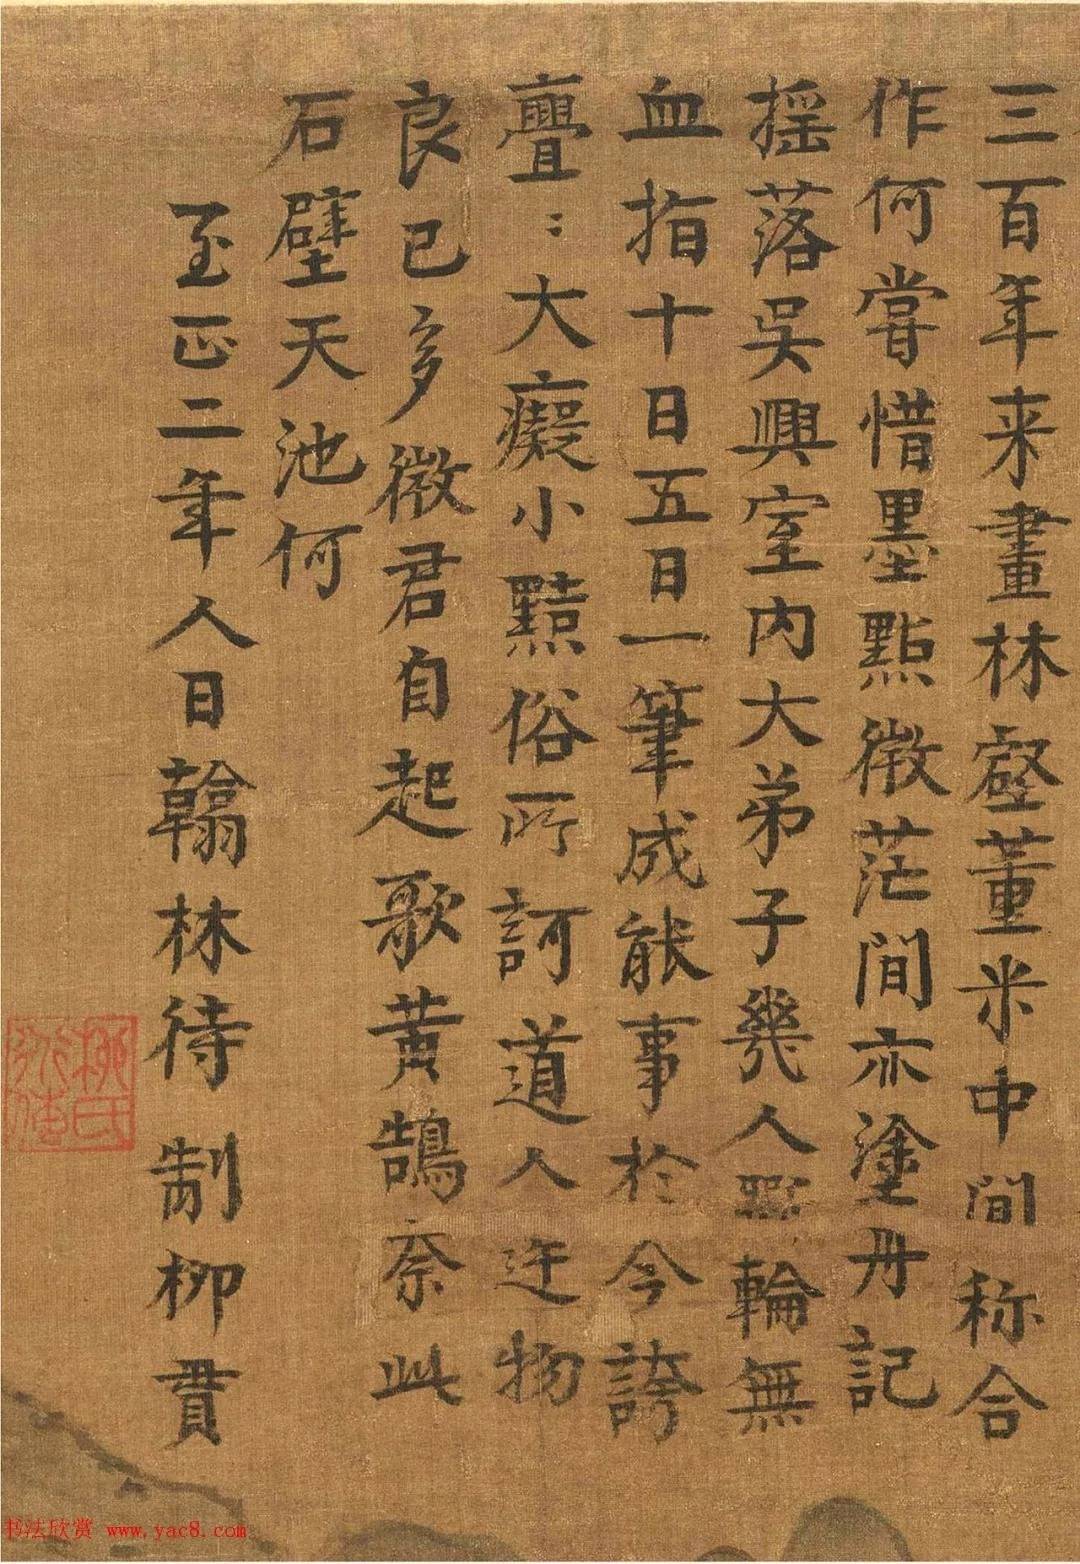 三百年来畫林壑董米中間称合
作何嘗惜墨點微茫間亦塗丹記
揺落吴興室内大弟子幾人斵輪無
血指十日五日一筆成能事於今誇
亹〻大癡小黠俗所訶道人迂物
良已多徴君自起歌黄鵠奈此
石壁天池何
至正二年人日翰林待制柳貫
柳氏
书法欣赏 www.yac8.com